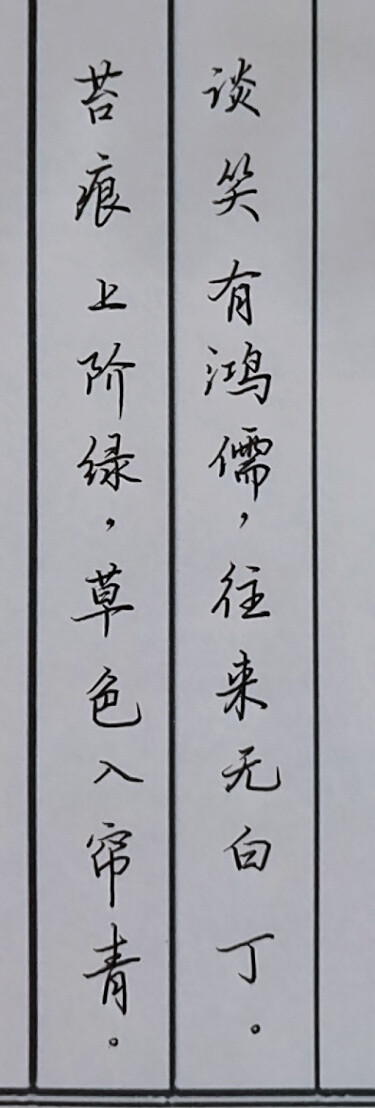 谈笑有鸿儒，往来无白丁。
苔痕上阶绿，草色入帘青。